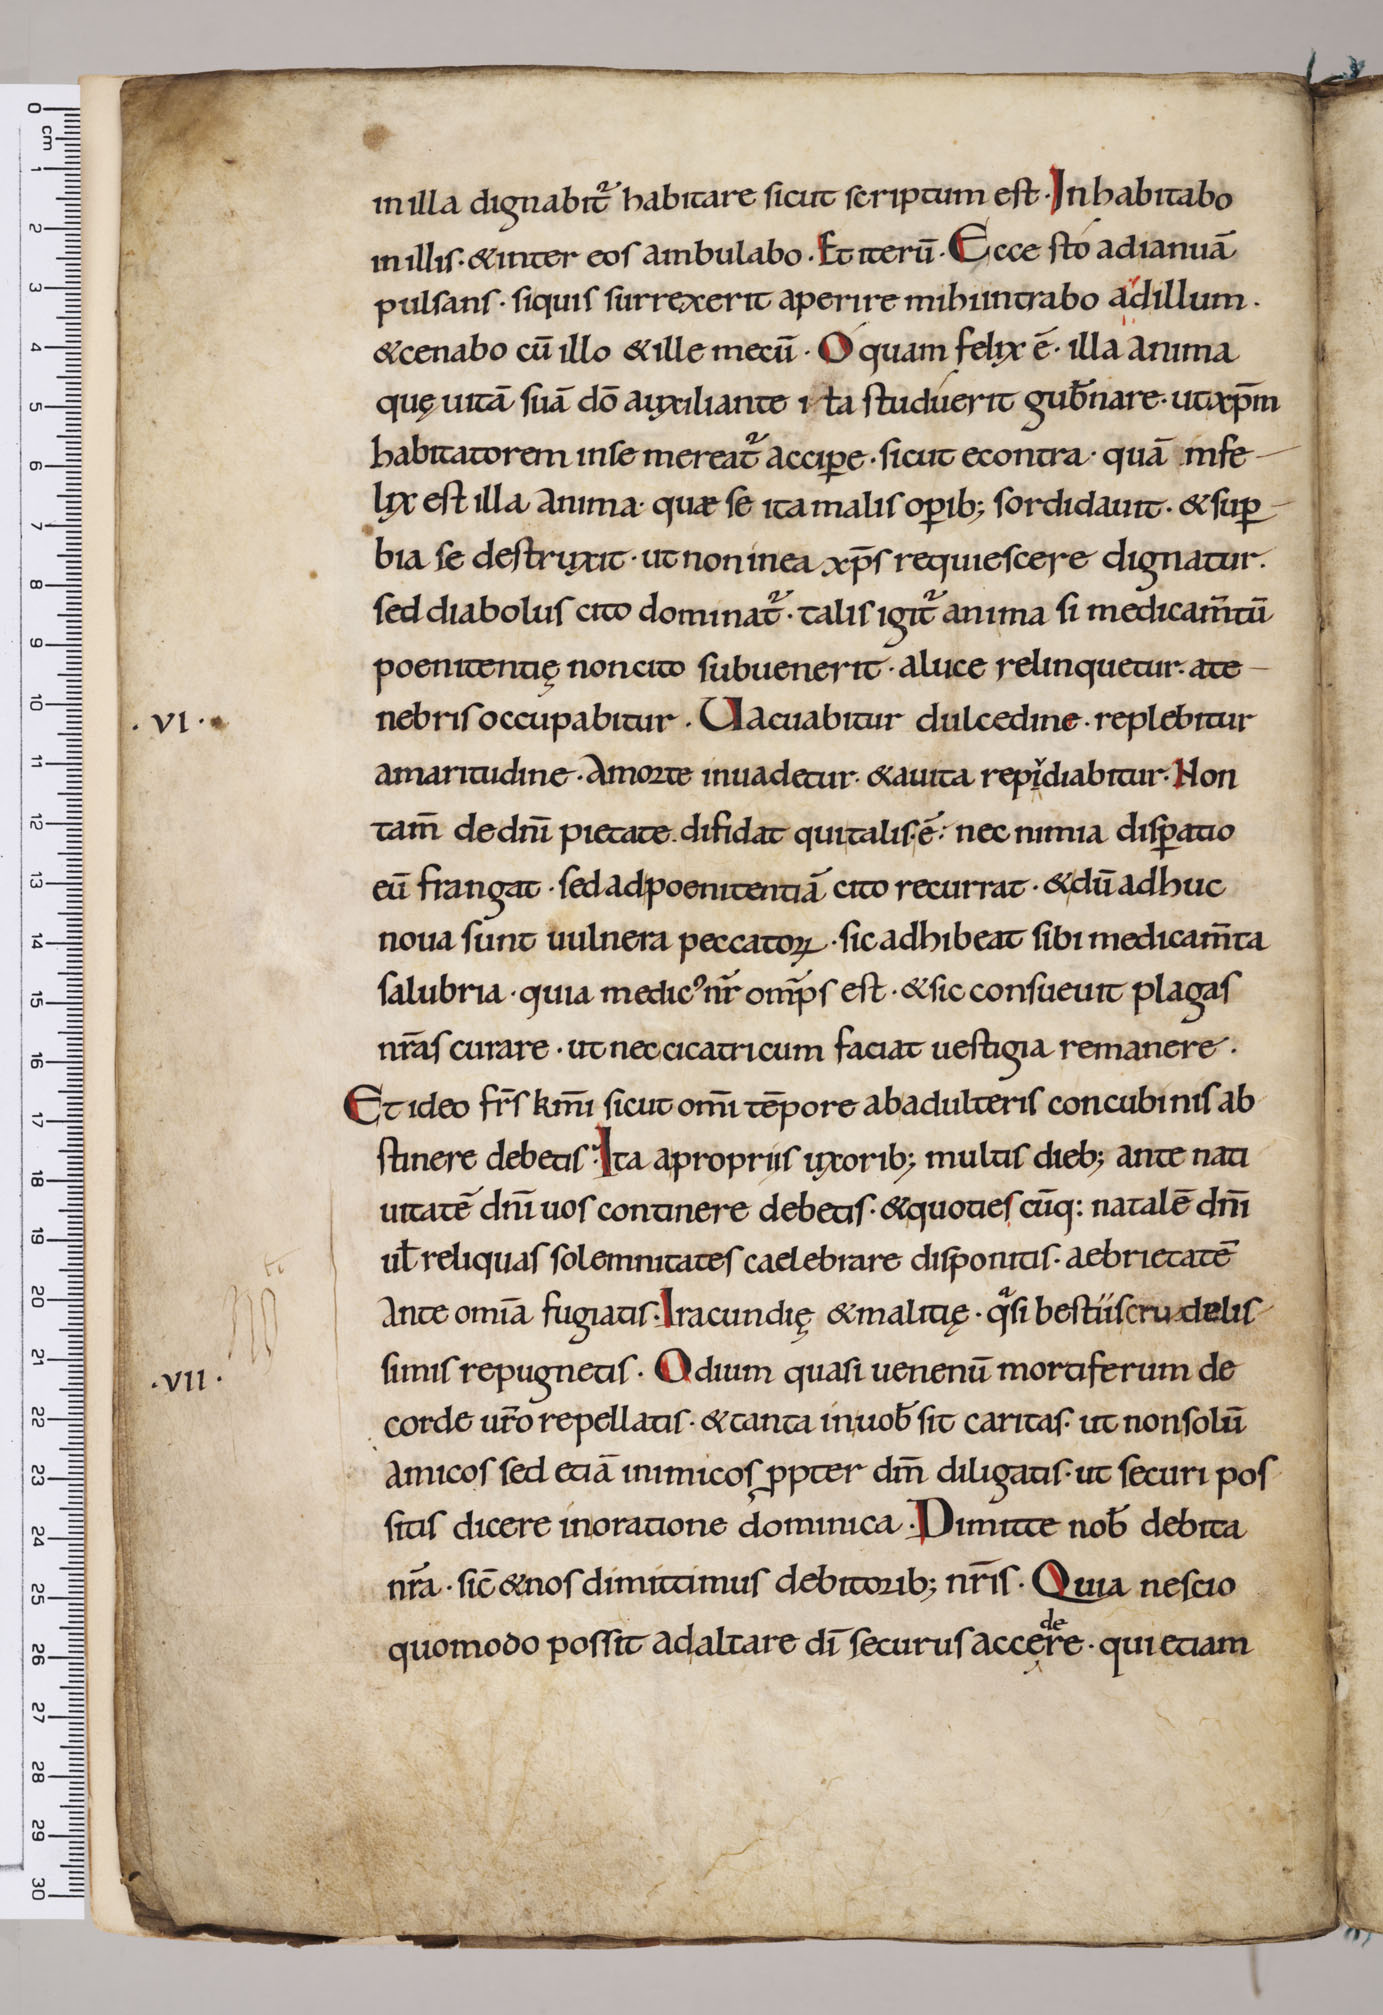 in illa dignabit᷑ habitare sicut scriptum est · Inhabitabo
in illis · & inter eos ambulabo · Et iterū · Ecce sto ad ianuā
pulsans · siquis surrexerit aperire mihi intrabo ad illum ·
& cenabo cū illo & ille mecū · O quam felix ē · illa anima
quę uitā suā dō auxiliante ita studuerit gub̄nare · ut xp̄m
habitatorem in se mereat᷑ accip̲e · sicut econtra · quā infe
lix est illa anima · quae se ita malis op̲ib; sordidauit · & sup̲
bia se destruxit · ut non in ea xp̄s requiescere dignatur ·
sed diabolus cito dominat᷑ · talis igit᷑ anima si medicam̄tū
poenitentię non cito subuenerit · a luce relinquetur · a te
· VI ·
nebris occupabitur · Uacuabitur dulcedine · replebitur
amaritudine · A morte inuadetur · & a uita repudiabitur · Non
tam̄ de dn̄i pietate difidat qui talis ē · nec nimia disp̲atio
eū frangat · sed ad poenitentiā cito recurrat · & dū adhuc
noua sunt uulnera peccatoꝝ · sic adhibeat sibi medicam̄ta
salubria · quia medicꝰ nr̄ omp̄s est · & sic consueuit plagas
nr̄as curare · ut nec cicatricum faciat uestigia remanere ·
Et ideo fr̄s km̄i sicut om̄i tēpore ab adulteris concubinis ab
stinere debetis · Ita a propriis uxorib; multis dieb; ante nati
uitatē dn̄i uos continere debetis · & quotiescūq: natalē dn̄i
ul̄ reliquas solemnitates caelebrare disponitis · aebrietatē
ante om̄ia fugiatis · Iracundię & malitię · qᵃsi bestiis crudelis
· VII ·
simis repugnetis · Odium quasi uenenū mortiferum de
corde ur̄o repellatis · & tanta in uob̄ sit caritas · ut non solū
amicos sed etiā inimicos ꝓpter dm̄ diligatis · ut securi pos
sitis dicere in oratione dominica · Dimitte nob̄ debita
nr̄a · sic̄ & nos dimittimus debitorib; nr̄is · Quia nescio
quomodo possit ad altare dī securus accedere · qui etiam